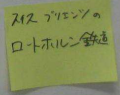 スイス ブリエンツの
ロートホルン鉄道